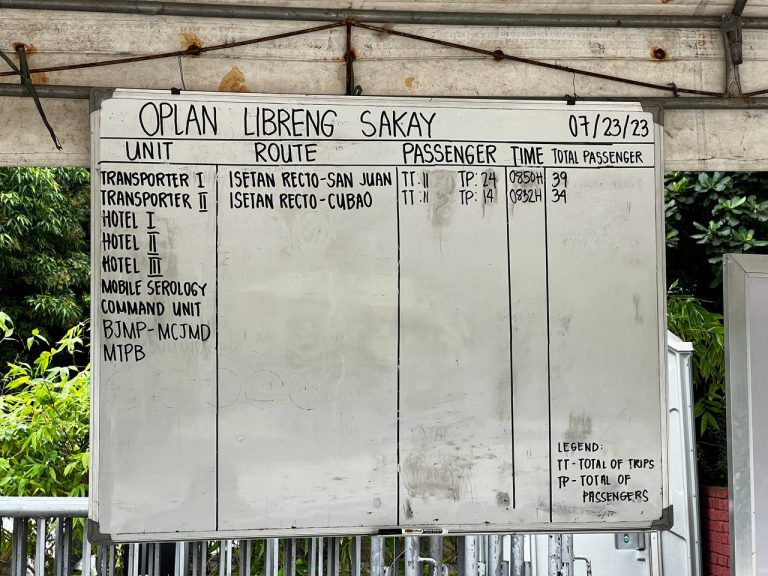 OPLAN LIBRENG SAKAY 07/23/23
UNIT ROUTE PASSENGER TIME TOTAL PASSENGER
TRANSPORTER I ISETAN RECTO-SAN JUAN TT:II TP:24 0850H 39
TRANSPORTER II ISETAN RECTO-CUBAO TT:II TP:14 0832H 34
HOTEL I
HOTEL II
HOTEL III
MOBILE SEROLOGY
COMMAND UNIT
BJMP-MCJMD
MTPB
LEGEND:
TT-TOTAL OF TRIPS
TP-TOTAL OF
PASSENGERS